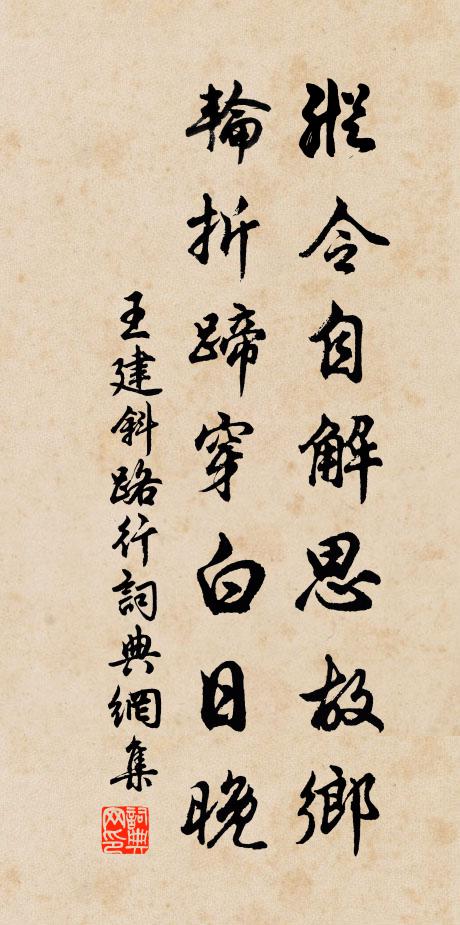 縱令自解思故鄉
輪折蹄穿白日晚
王建斜路行詞典網集
詞典網印